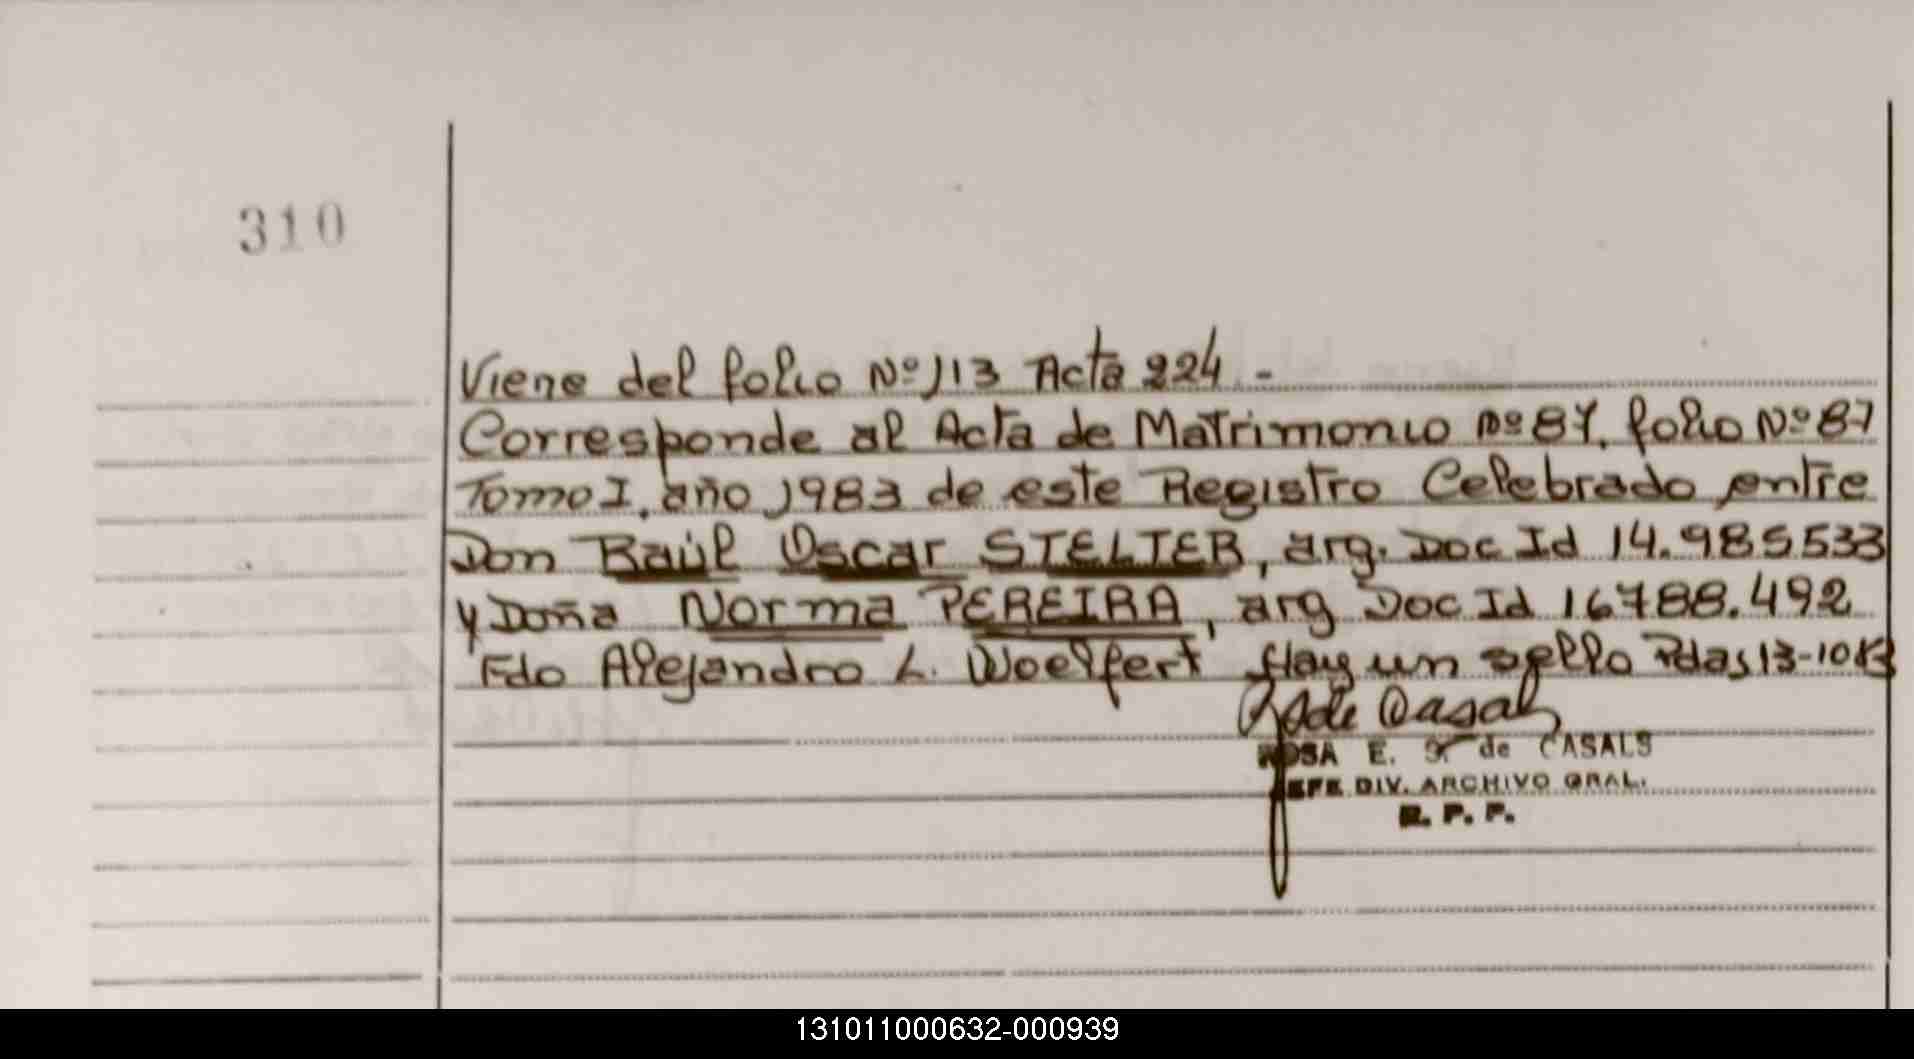 310
Viene del folio Nº 113 Acta 224 -
Corresponde al Acta de Matrimonio Nº 87, folio Nº 87
Tomo I, año 1983 de este Registro Celebrado entre
Don Raúl Oscar STELTER, arg. Doc Id 14.985533
y Doña Norma PEREIRA, arg Doc Id 16788.492
Fdo Alejandro L. Woelfert Hay un sello Pdas 13-10 83
de Casals
ROSA E. S. de CASALS
JEFE DIV. ARCHIVO GRAL.
R. P. P.
131011000632-000939